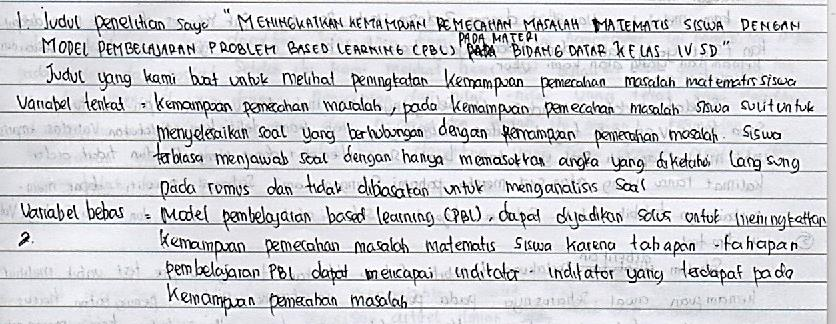 1. Judul penelitian saya "MENINGKATKAN KEMAMPUAN PEMECAHAN MASALAH MATEMATIS SISWA DENGAN
MODEL PEMBELAJARAN PROBLEM BASED LEARNING (PBL) PADA MATERI BIDANG DATAR KELAS IV SD"
Judul yang kami buat untuk melihat peningkatan kemampuan pemecahan masalah matematis siswa
Variabel terikat = Kemampuan pemecahan masalah, pada kemampuan pemecahan masalah siswa sulit untuk
menyelesaikan soal yang berhubungan dengan kemampuan pemecahan masalah. Siswa
terbiasa menjawab soal dengan hanya memasukkan angka yang diketahui langsung
pada rumus dan tidak dibiasakan untuk menganalisis soal
Variabel bebas = Model pembelajaran based learning (PBL), dapat dijadikan solusi untuk meningkatkan
2. kemampuan pemecahan masalah matematis siswa karena tahapan - tahapan
pembelajaran PBL dapat mencapai indikator - indikator yang terdapat pada
kemampuan pemecahan masalah